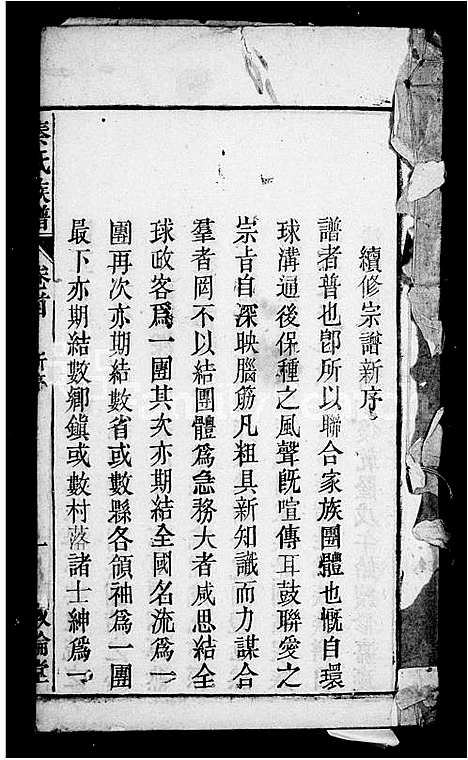 續修宗譜新序
譜者普也卽所以聯合家族團體也慨自環
球溝通後保種之風聲旣喧傳耳鼓聯愛之
宗旨自深映腦筋凡粗具新知識而力謀合
羣者罔不以結團體爲急務大者咸思結全
球政客爲一團其次亦期結全國名流爲一
團再次亦期結數省或數縣各領袖爲一團
最下亦期結數鄉鎭或數村落諸士紳爲一
秦氏族譜 卷首 新序 一 敘倫堂